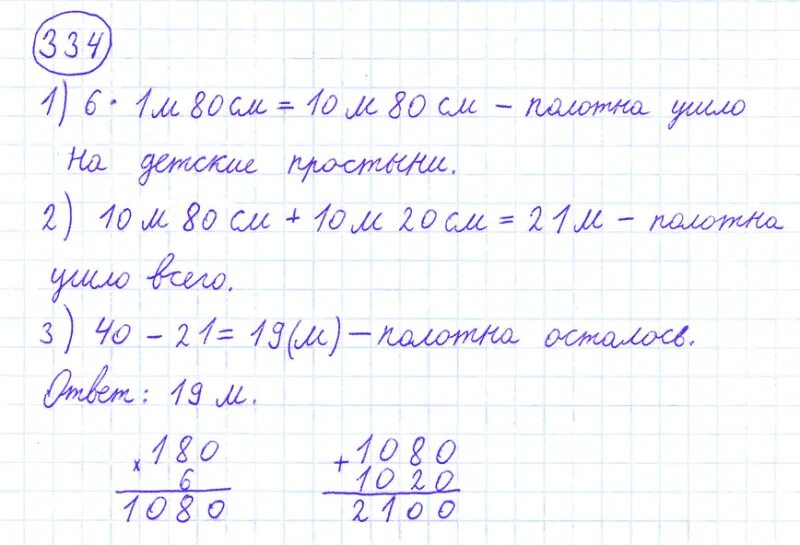 334
1) 6 · 1м 80 см = 10 м 80 см – полотна ушло
на детские простыни.
2) 10 м 80 см + 10 м 20 см = 21 м – полотна
ушло всего.
3) 40 – 21 = 19 (м) – полотна осталось.
Ответ: 19 м.
× 180
6
1080
+ 1080
1020
2100